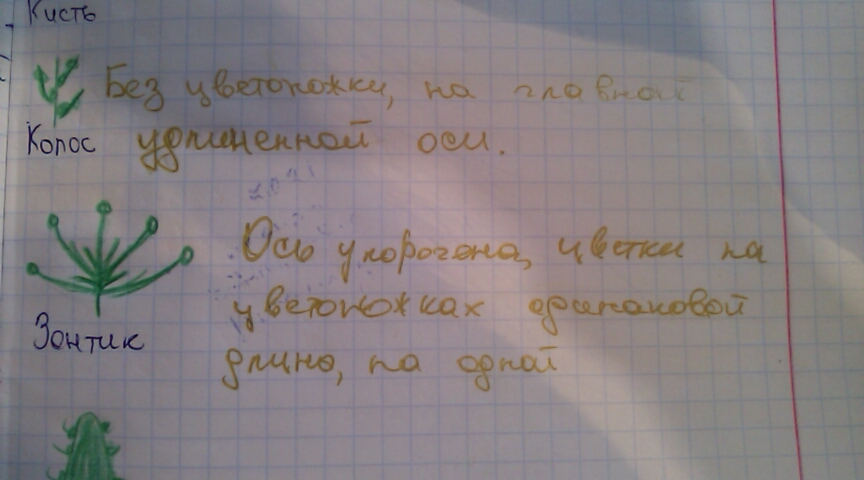 Кисть
Без цветоножки, на главной
Колос удлиненной оси.
Ось укорочена, цветки на
цветоножках одинаковой
Зонтик
длино, на одной